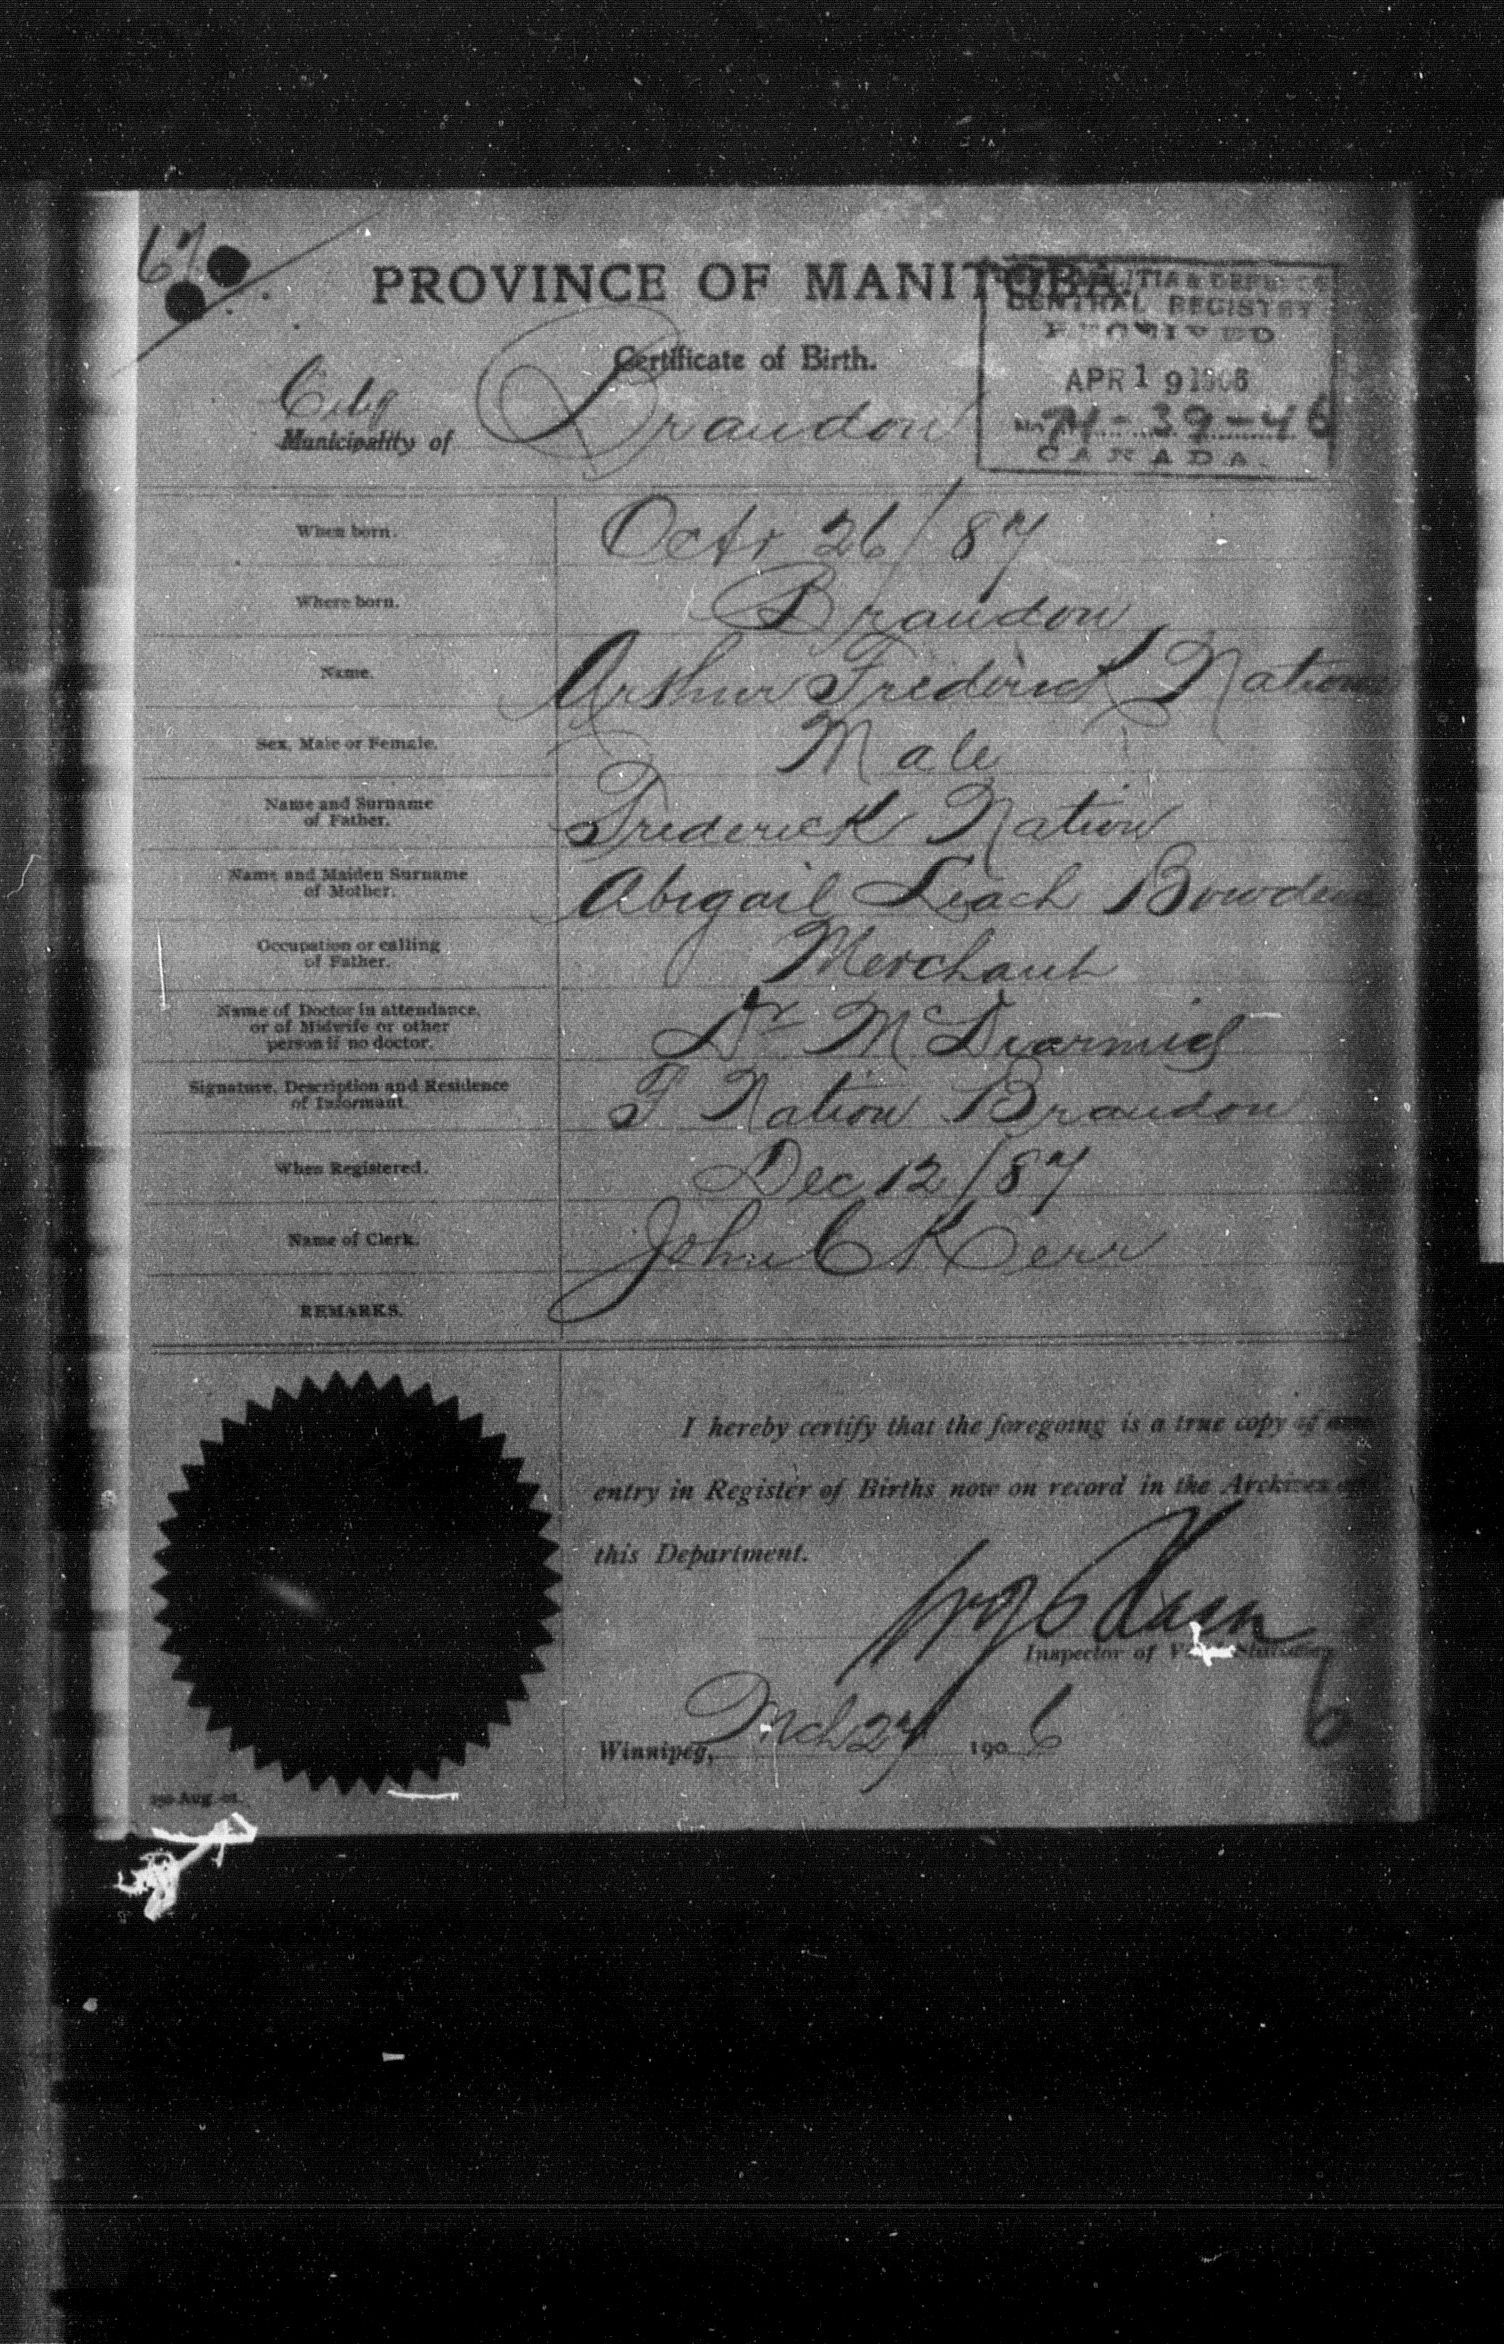 67
PROVINCE OF MANITOBA
MILITIA & DEFENCE
CENTRAL REGISTRY
RECEIVED
APR 19 1906
No. 74-39-46
CANADA.
Certificate of Birth.
City
Municipality of Brandon
When born. Octr 26/87
Where born. Brandon
Name. Arthur Frederick Nation
Sex, Male or Female. Male
Name and Surname
of Father. Frederick Nation
Name and Maiden Surname
of Mother. Abigail Leach Bowden
Occupation or calling
of Father. Merchant
Name of Doctor in attendance,
or of Midwife or other
person if no doctor. Dr McDiarmid
Signature, Description and Residence
of Informant. F Nation Brandon
When Registered. Dec 12/87
Name of Clerk. John C Kerr
REMARKS.
I hereby certify that the foregoing is a true copy of an
entry in Register of Births now on record in the Archives of
this Department.
Inspector of Vital Statistics
6
Winnipeg, Mch 27 1906
Aug.